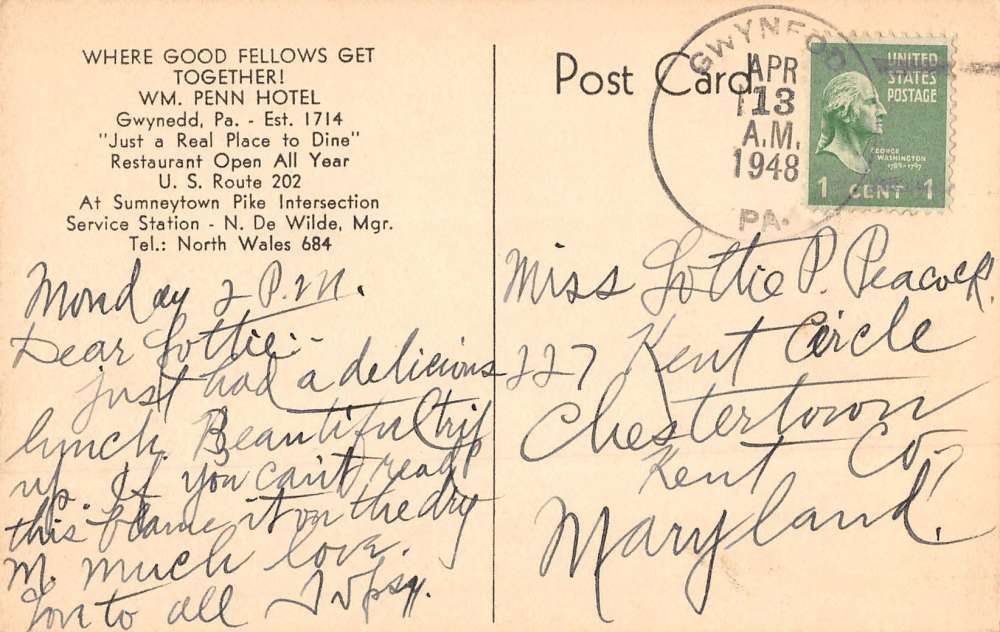 WHERE GOOD FELLOWS GET
TOGETHER!
WM. PENN HOTEL
Gwynedd, Pa. - Est. 1714
"Just a Real Place to Dine"
Restaurant Open All Year
U. S. Route 202
At Sumneytown Pike Intersection
Service Station - N. De Wilde, Mgr.
Tel.: North Wales 684
Monday 2 P.M.
Dear Lottie:-
just had a delicious
lunch. Beautiful trip
up. If you can't read
this blame it on the dry
M. much love.
Love to all
Post Card
GWYNEDD
APR
13
A.M.
1948
PA.
UNITED
STATES
POSTAGE
GEORGE
WASHINGTON
1789-1797
1 CENT 1
Miss Lottie P. Peacock
227 Kent Circle
Chestertown
Kent Co.
Maryland.